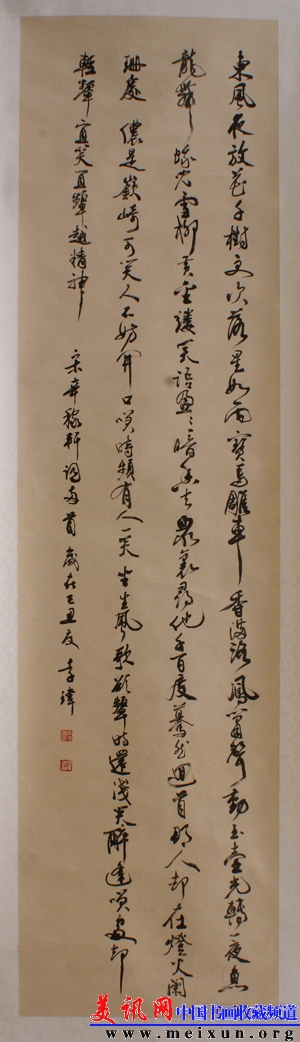 東風夜放花千樹更吹落星如雨寶馬雕車香滿路鳳簫聲動玉壺光轉一夜魚
龍舞蛾兒雪柳黃金縷笑語盈々暗香去眾裏尋他千百度驀然迴首那人却在燈火闌
珊處 儂是嶔崎可笑人不妨開口笑時頻有人一笑坐生風歌欲顰時還淺笑醉逢笑處却
輕顰宜笑宜顰越精神
宋辛稼軒詞兩首歲在己丑夏李瑋
美讯网 中国书画收藏频道
www.meixun.org